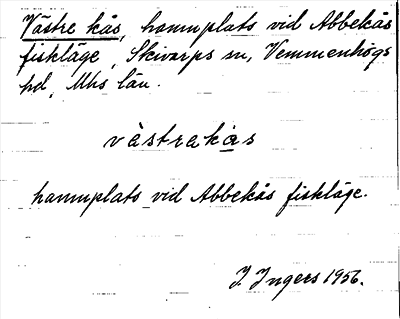 Västre kås, hamnplats vid Abbekås
fiskläge, Skivarps sn, Vemmenhögs
hd, Mhs län.
västrakås
hamnplats vid Abbekås fiskläge.
I. Ingers 1956.